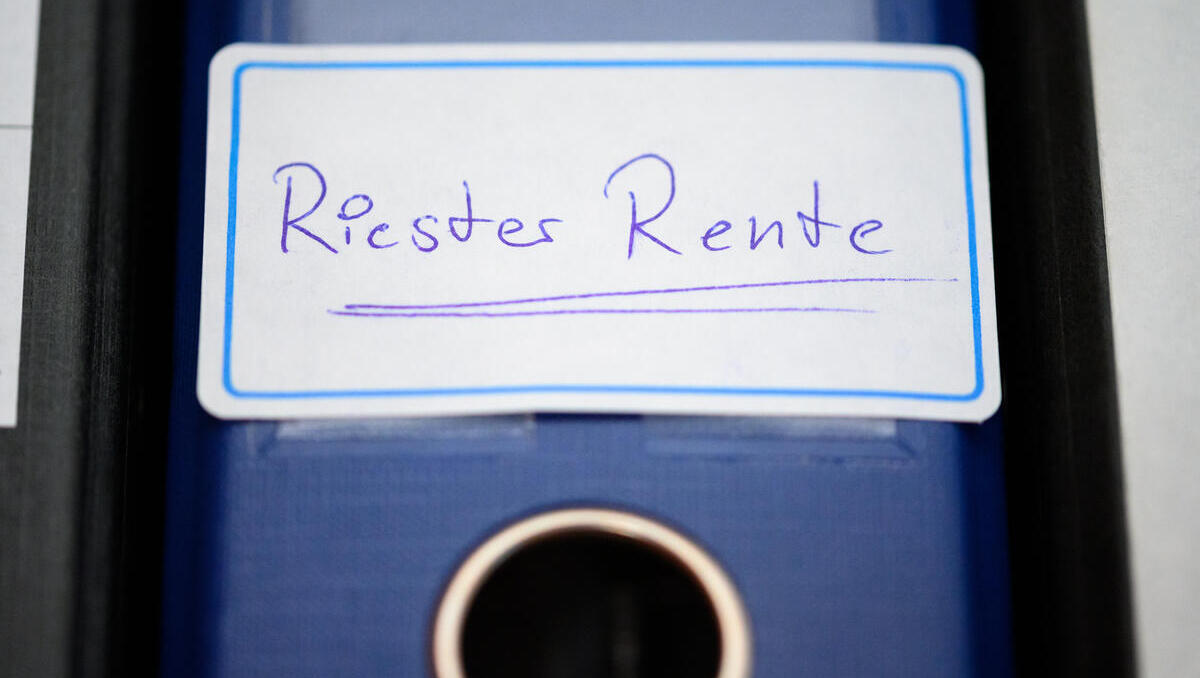 Riester Rente